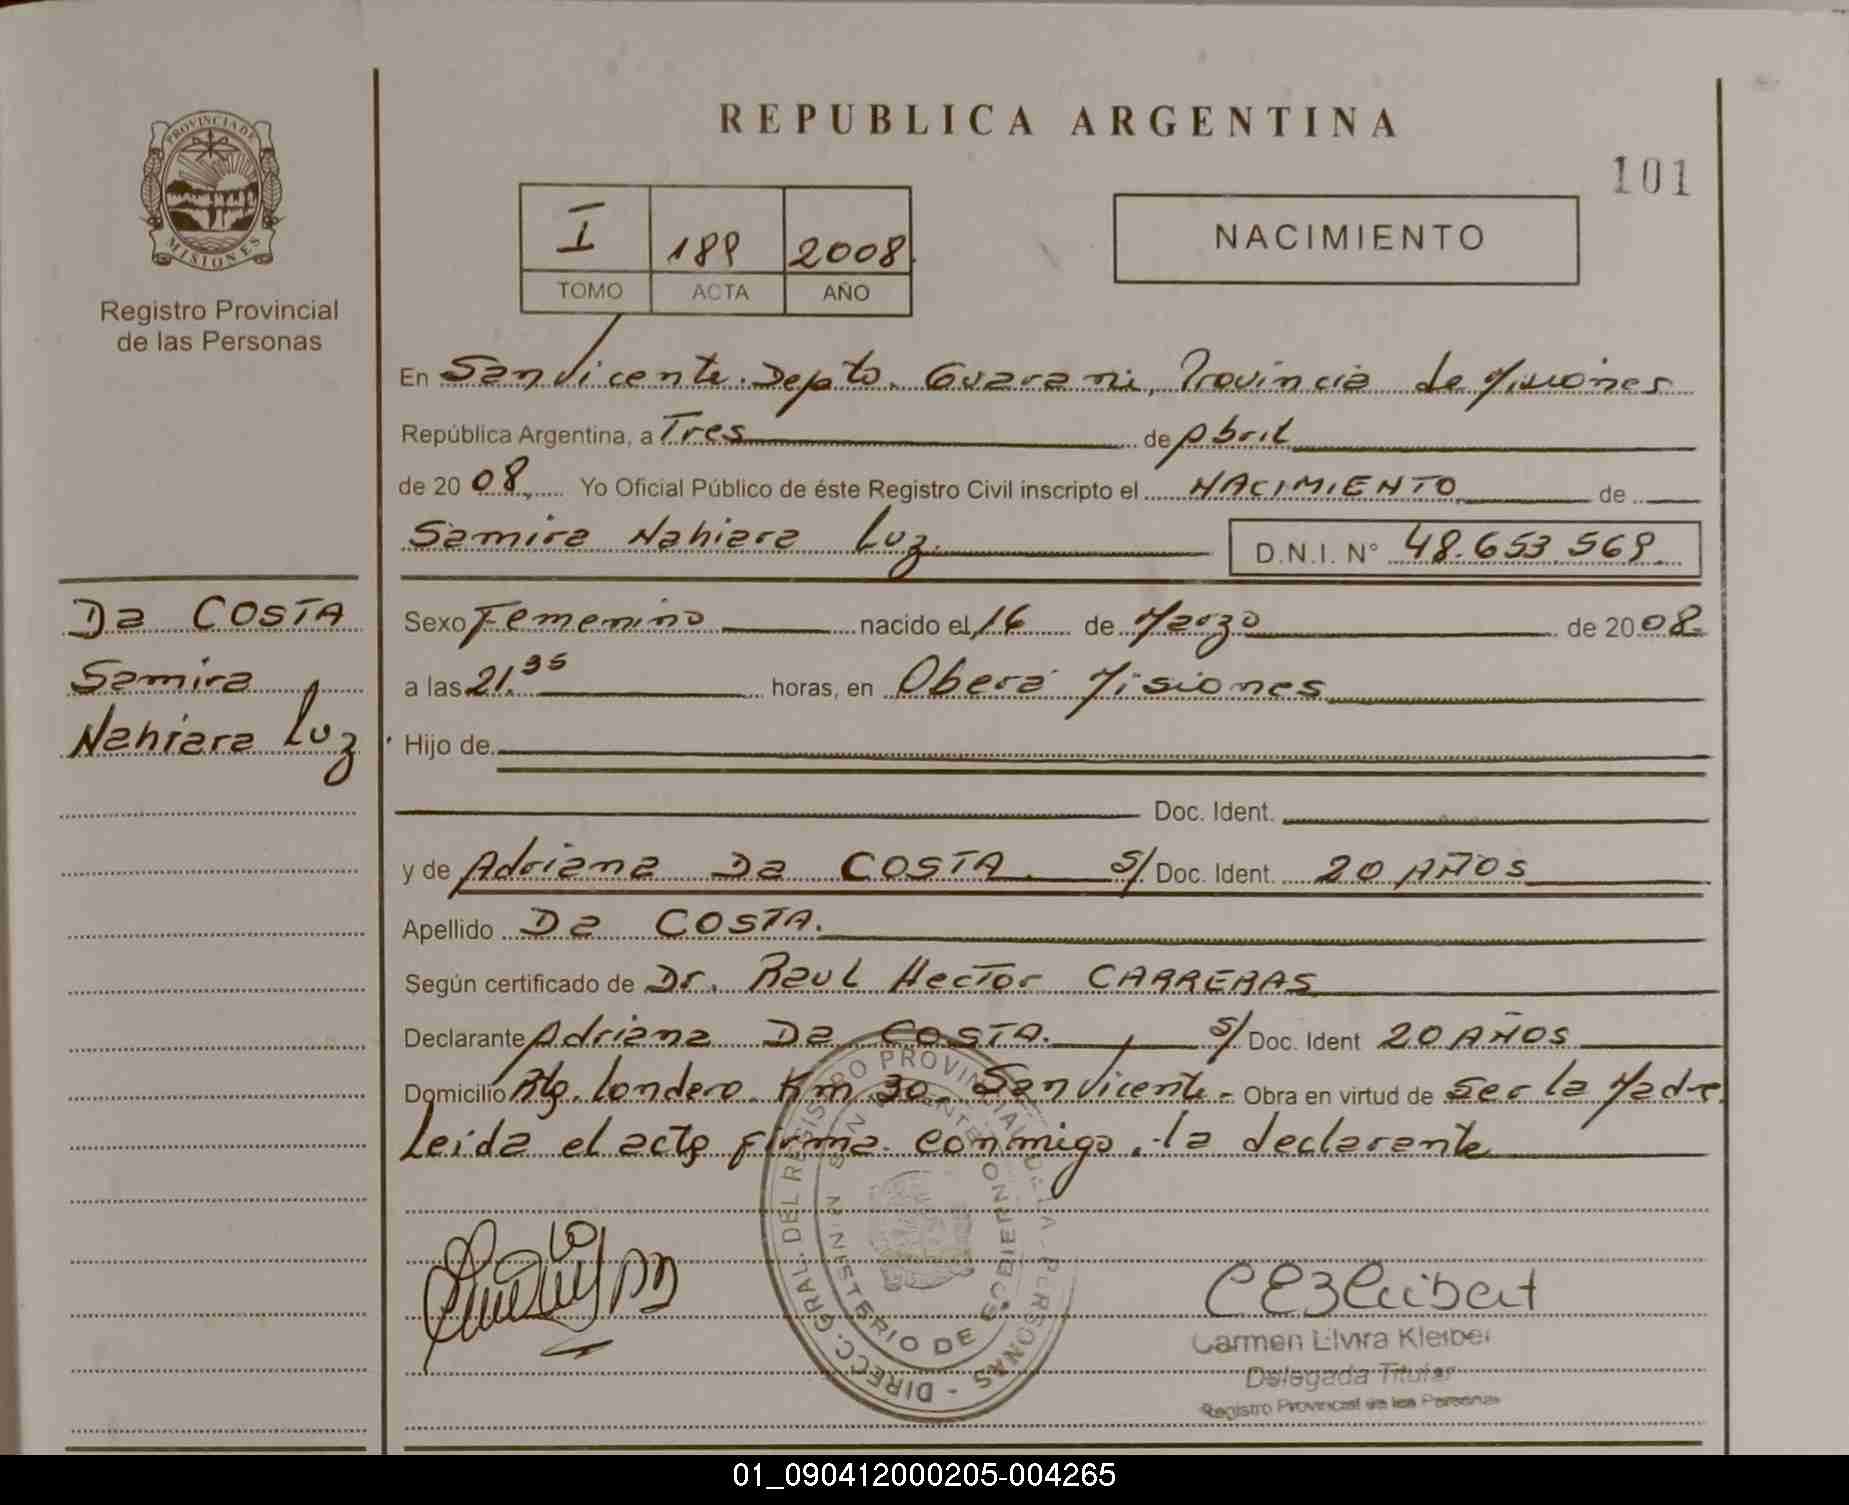 REPUBLICA ARGENTINA
101
PROVINCIA DE
MISIONES
Registro Provincial
de las Personas
I 189 2008
TOMO ACTA AÑO
NACIMIENTO
En San Vicente. Depto. Guarani, Provincia de Misiones
República Argentina, a Tres de Abril
de 20 08, Yo Oficial Público de éste Registro Civil inscripto el NACIMIENTO de
Samira Nahiara Luz. D.N.I. N° 48.653.569.
Da COSTA
Samira
Nahiara Luz
Sexo Femenino nacido el 16 de Marzo de 2008.
a las 21.35 horas, en Oberá Misiones
Hijo de
Doc. Ident.
y de Adriana Da COSTA. S/ Doc. Ident. 20 AÑOS
Apellido Da COSTA.
Según certificado de Dr. Raul Hector CARRERAS
Declarante Adriana Da COSTA. S/ Doc. Ident 20 AÑOS
Domicilio Londero. Km 30. San Vicente - Obra en virtud de ser la Madre
Leida el acta firma conmigo. la declarante
DIRECC. GRAL. DEL REGISTRO PROVINCIAL DE LA PERSONAS
MINISTERIO DE GOBIERNO
SAN VICENTE
Carmen Elvira Kleiber
Delegada Titular
Registro Provincial de las Personas
01_090412000205-004265